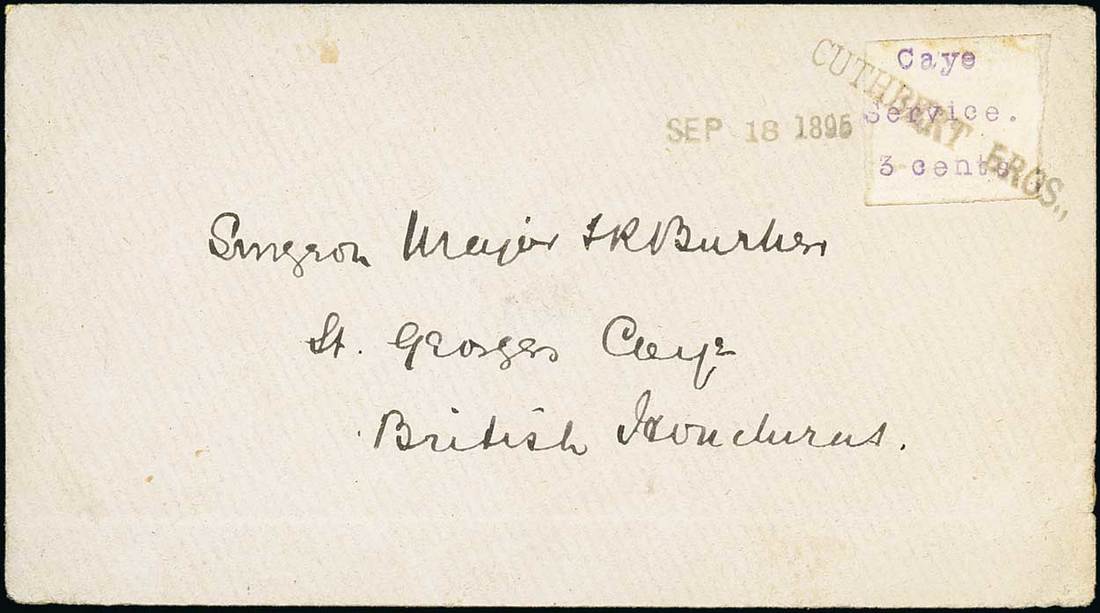 Caye
Service.
3 cents
CUTHBERT BROS.,
SEP 18 1895
Surgeon Major
St. Georges Caye
British Honduras.